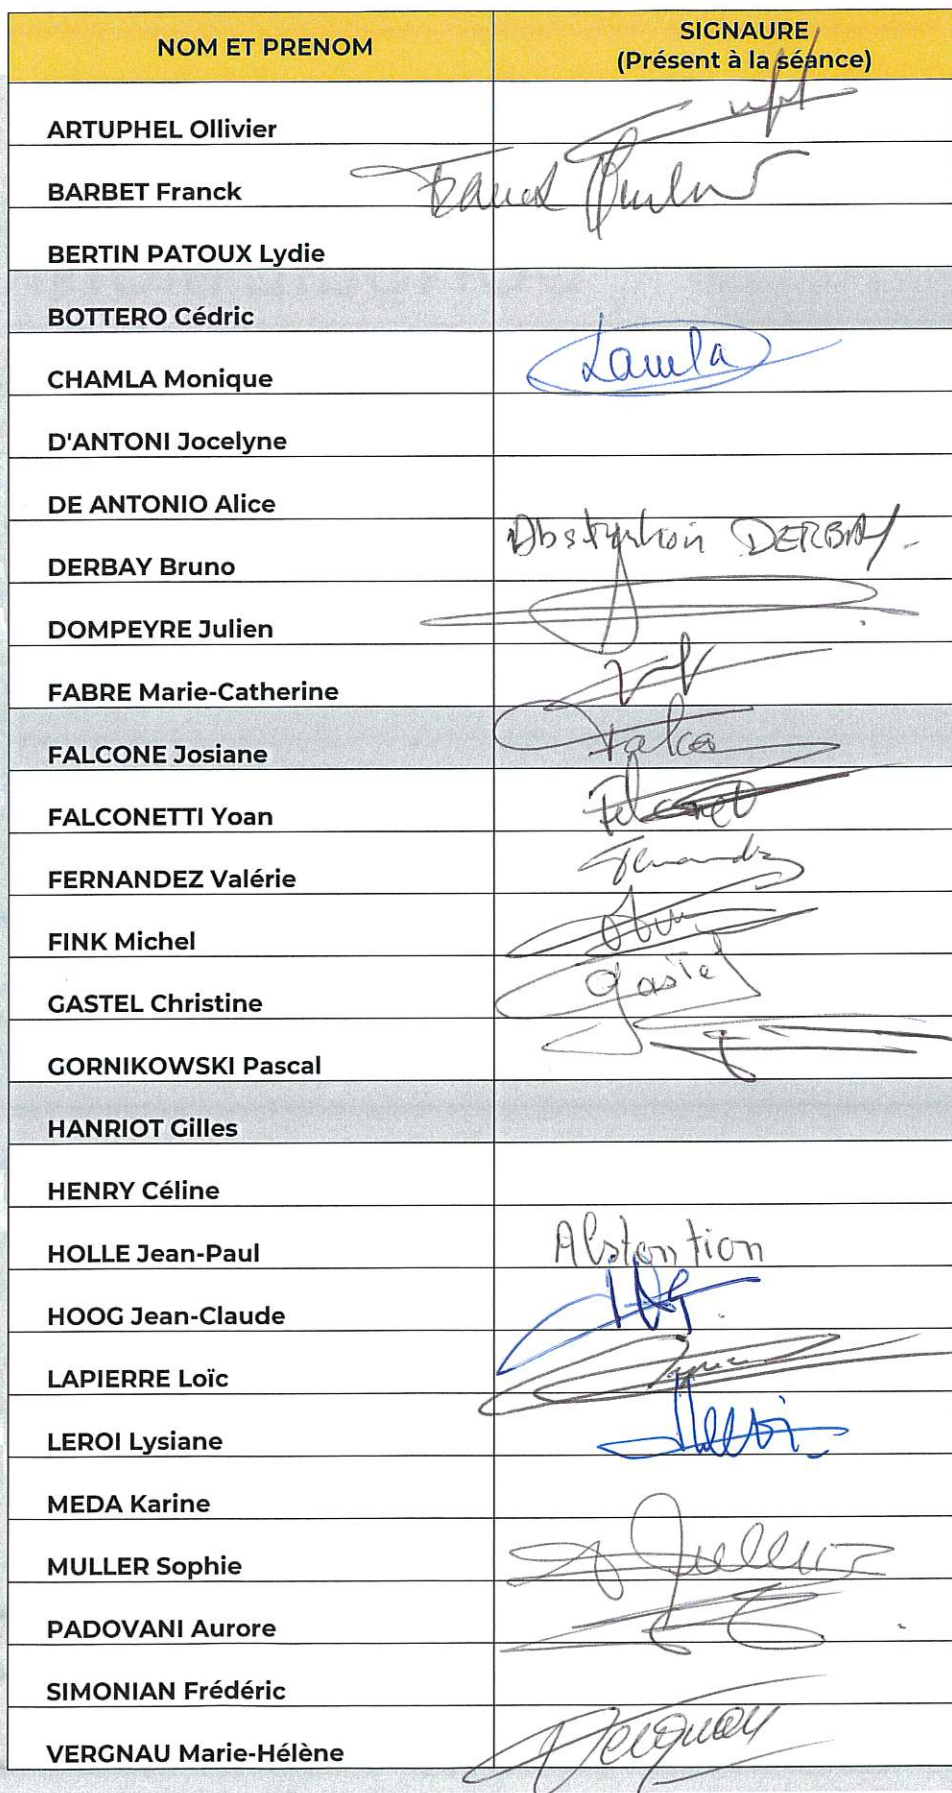 NOM ET PRENOM
SIGNAURE
(Présent à la séance)
ARTUPHEL Ollivier
BARBET Franck
Franck
BERTIN PATOUX Lydie
BOTTERO Cédric
CHAMLA Monique
D'ANTONI Jocelyne
DE ANTONIO Alice
DERBAY Bruno
DERBAY
DOMPEYRE Julien
FABRE Marie-Catherine
FALCONE Josiane
FALCONETTI Yoan
FERNANDEZ Valérie
FINK Michel
GASTEL Christine
Gastel
GORNIKOWSKI Pascal
HANRIOT Gilles
HENRY Céline
HOLLE Jean-Paul
Abstention
HOOG Jean-Claude
LAPIERRE Loïc
LEROI Lysiane
MEDA Karine
MULLER Sophie
PADOVANI Aurore
SIMONIAN Frédéric
VERGNAU Marie-Hélène